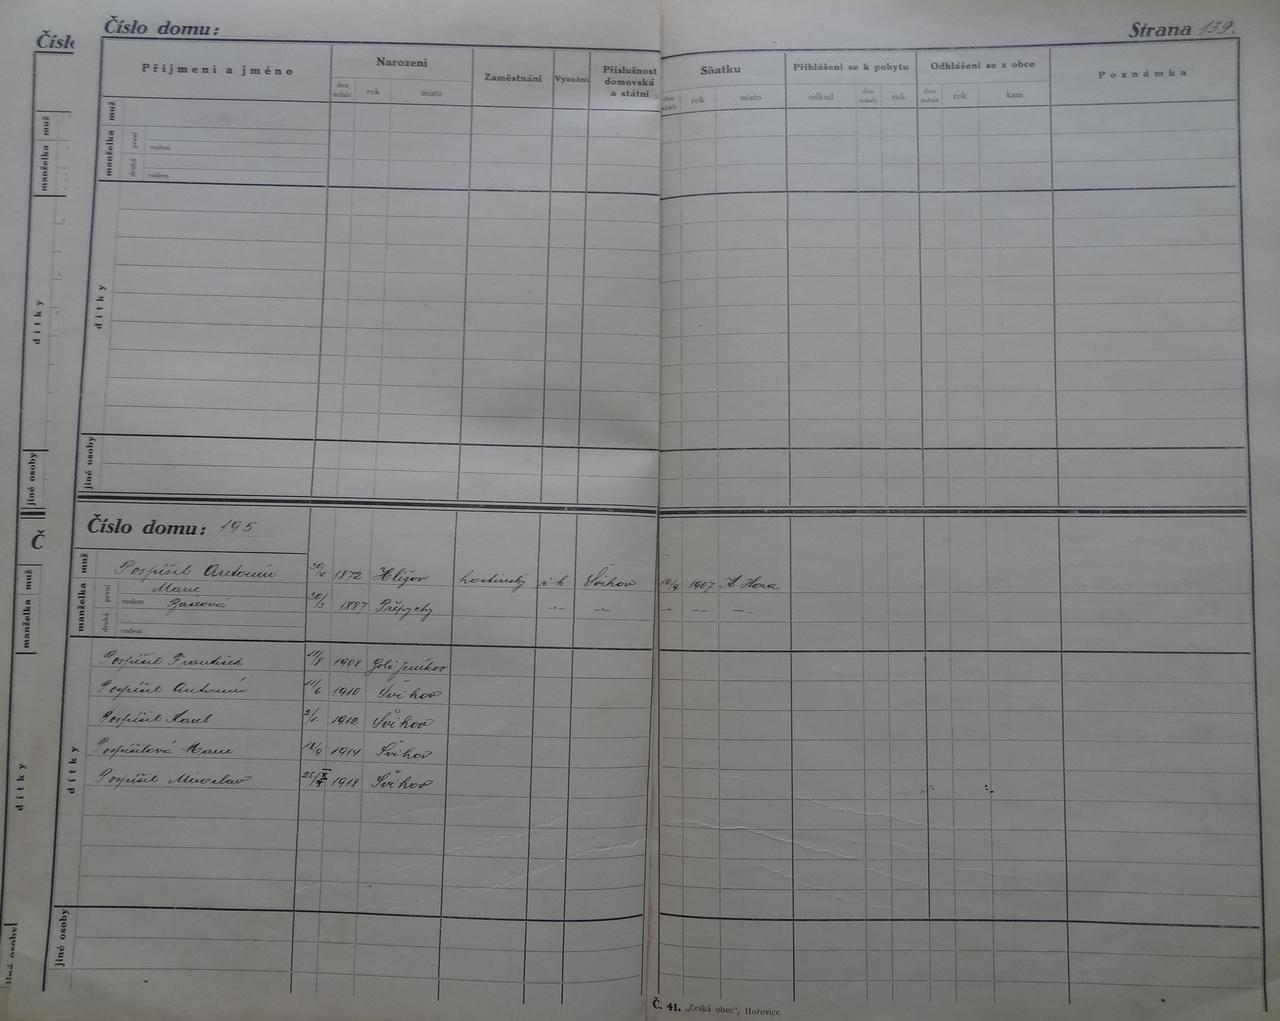 Číslo domu:
Strana 139.
Příjmení a jméno
Narození
Zaměstnání
Vyznání
Příslušnost domovská a státní
Sňatku
Přihlášení se k pobytu
Odhlášení se z obce
Poznámka
den měsíc rok místo
den měsíc rok místo
odkud den měsíc rok
den měsíc rok kam
muž
manželka
první
rodem
druhá
rodem
dítky
jiné osoby
Číslo domu: 195
muž
Pospíšil Antonín 30/4 1872 Hlížov hostinský Švihov 10/9 1907 K. Hora
manželka
první
Marie
rodem 30/3 1887 Přepychy —"— —"— —"— —"— —"—
druhá
rodem
dítky
Pospíšil František 11/8 1908
Pospíšil Antonín 11/6 1910 Švihov
Pospíšil Karel 2/1 1912 Švihov
Pospíšilová Marie 12/9 1914 Švihov
Pospíšil Miroslav 1918 Švihov
jiné osoby
Č. 41. „Česká obec", Hořovice.
Číslo
muž
manželka
dítky
jiné osoby
Č
muž
manželka
dítky
jiné osoby